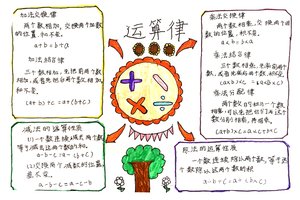 运算律
加法交换律
两个数相加,交换两个加数
的位置,和不变。
a+b=b+a
加法结合律
三个数相加,先把前两个数
相加,或者先把后两个数相加,
和不变。
(a+b)+c=a+(b+c)
减法的运算性质
(1)一个数连续减去两个数,
等于减去这两个数的和。
a-b-c=a-(b+c)
(2)交换两个减数的位置,
差不变。
a-b-c=a-c-b
乘法交换律
两个数相乘,交换两个因数
的位置,积不变。
a×b=b×a
乘法结合律
三个数相乘,先乘前两个
数,或者先乘后两个数,积不
变。
(a×b)×c=a×(b×c)
乘法分配律
两个数的和与一个数
相乘,
(a+b)×c=a×c+b×c
除法的运算性质
一个数连续除以两个数,等于这
个数除以这两个数的积
a÷b÷c=a÷(b×c)